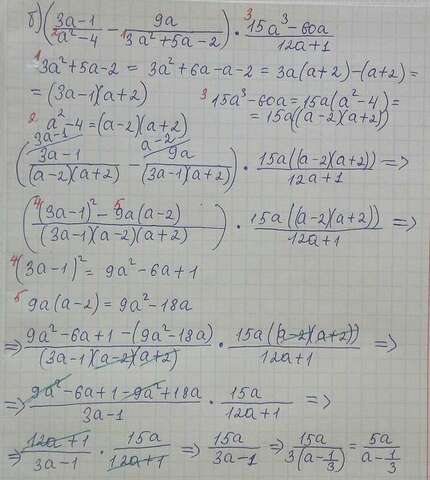 б) ( (3a-1)/(a²-4) - 9a/(3a²+5a-2) ) · (15a³-60a)/(12a+1)
¹ 3a²+5a-2 = 3a²+6a-a-2 = 3a(a+2)-(a+2) =
= (3a-1)(a+2) ³ 15a³-60a = 15a(a²-4) =
² a²-4 = (a-2)(a+2) = 15a((a-2)(a+2))
3a-1 a-2
( (3a-1)/((a-2)(a+2)) - 9a/((3a-1)(a+2)) ) · 15a((a-2)(a+2))/(12a+1) =>
( (⁴(3a-1)² - ⁵9a(a-2))/((3a-1)(a-2)(a+2)) ) · 15a((a-2)(a+2))/(12a+1) =>
⁴ (3a-1)² = 9a²-6a+1
⁵ 9a(a-2) = 9a²-18a
=> (9a²-6a+1-(9a²-18a))/((3a-1)(a-2)(a+2)) · 15a((a-2)(a+2))/(12a+1) =>
=> (9a²-6a+1-9a²+18a)/(3a-1) · 15a/(12a+1) =>
=> (12a+1)/(3a-1) · 15a/(12a+1) => 15a/(3a-1) => 15a/(3(a-1/3)) = 5a/(a-1/3)